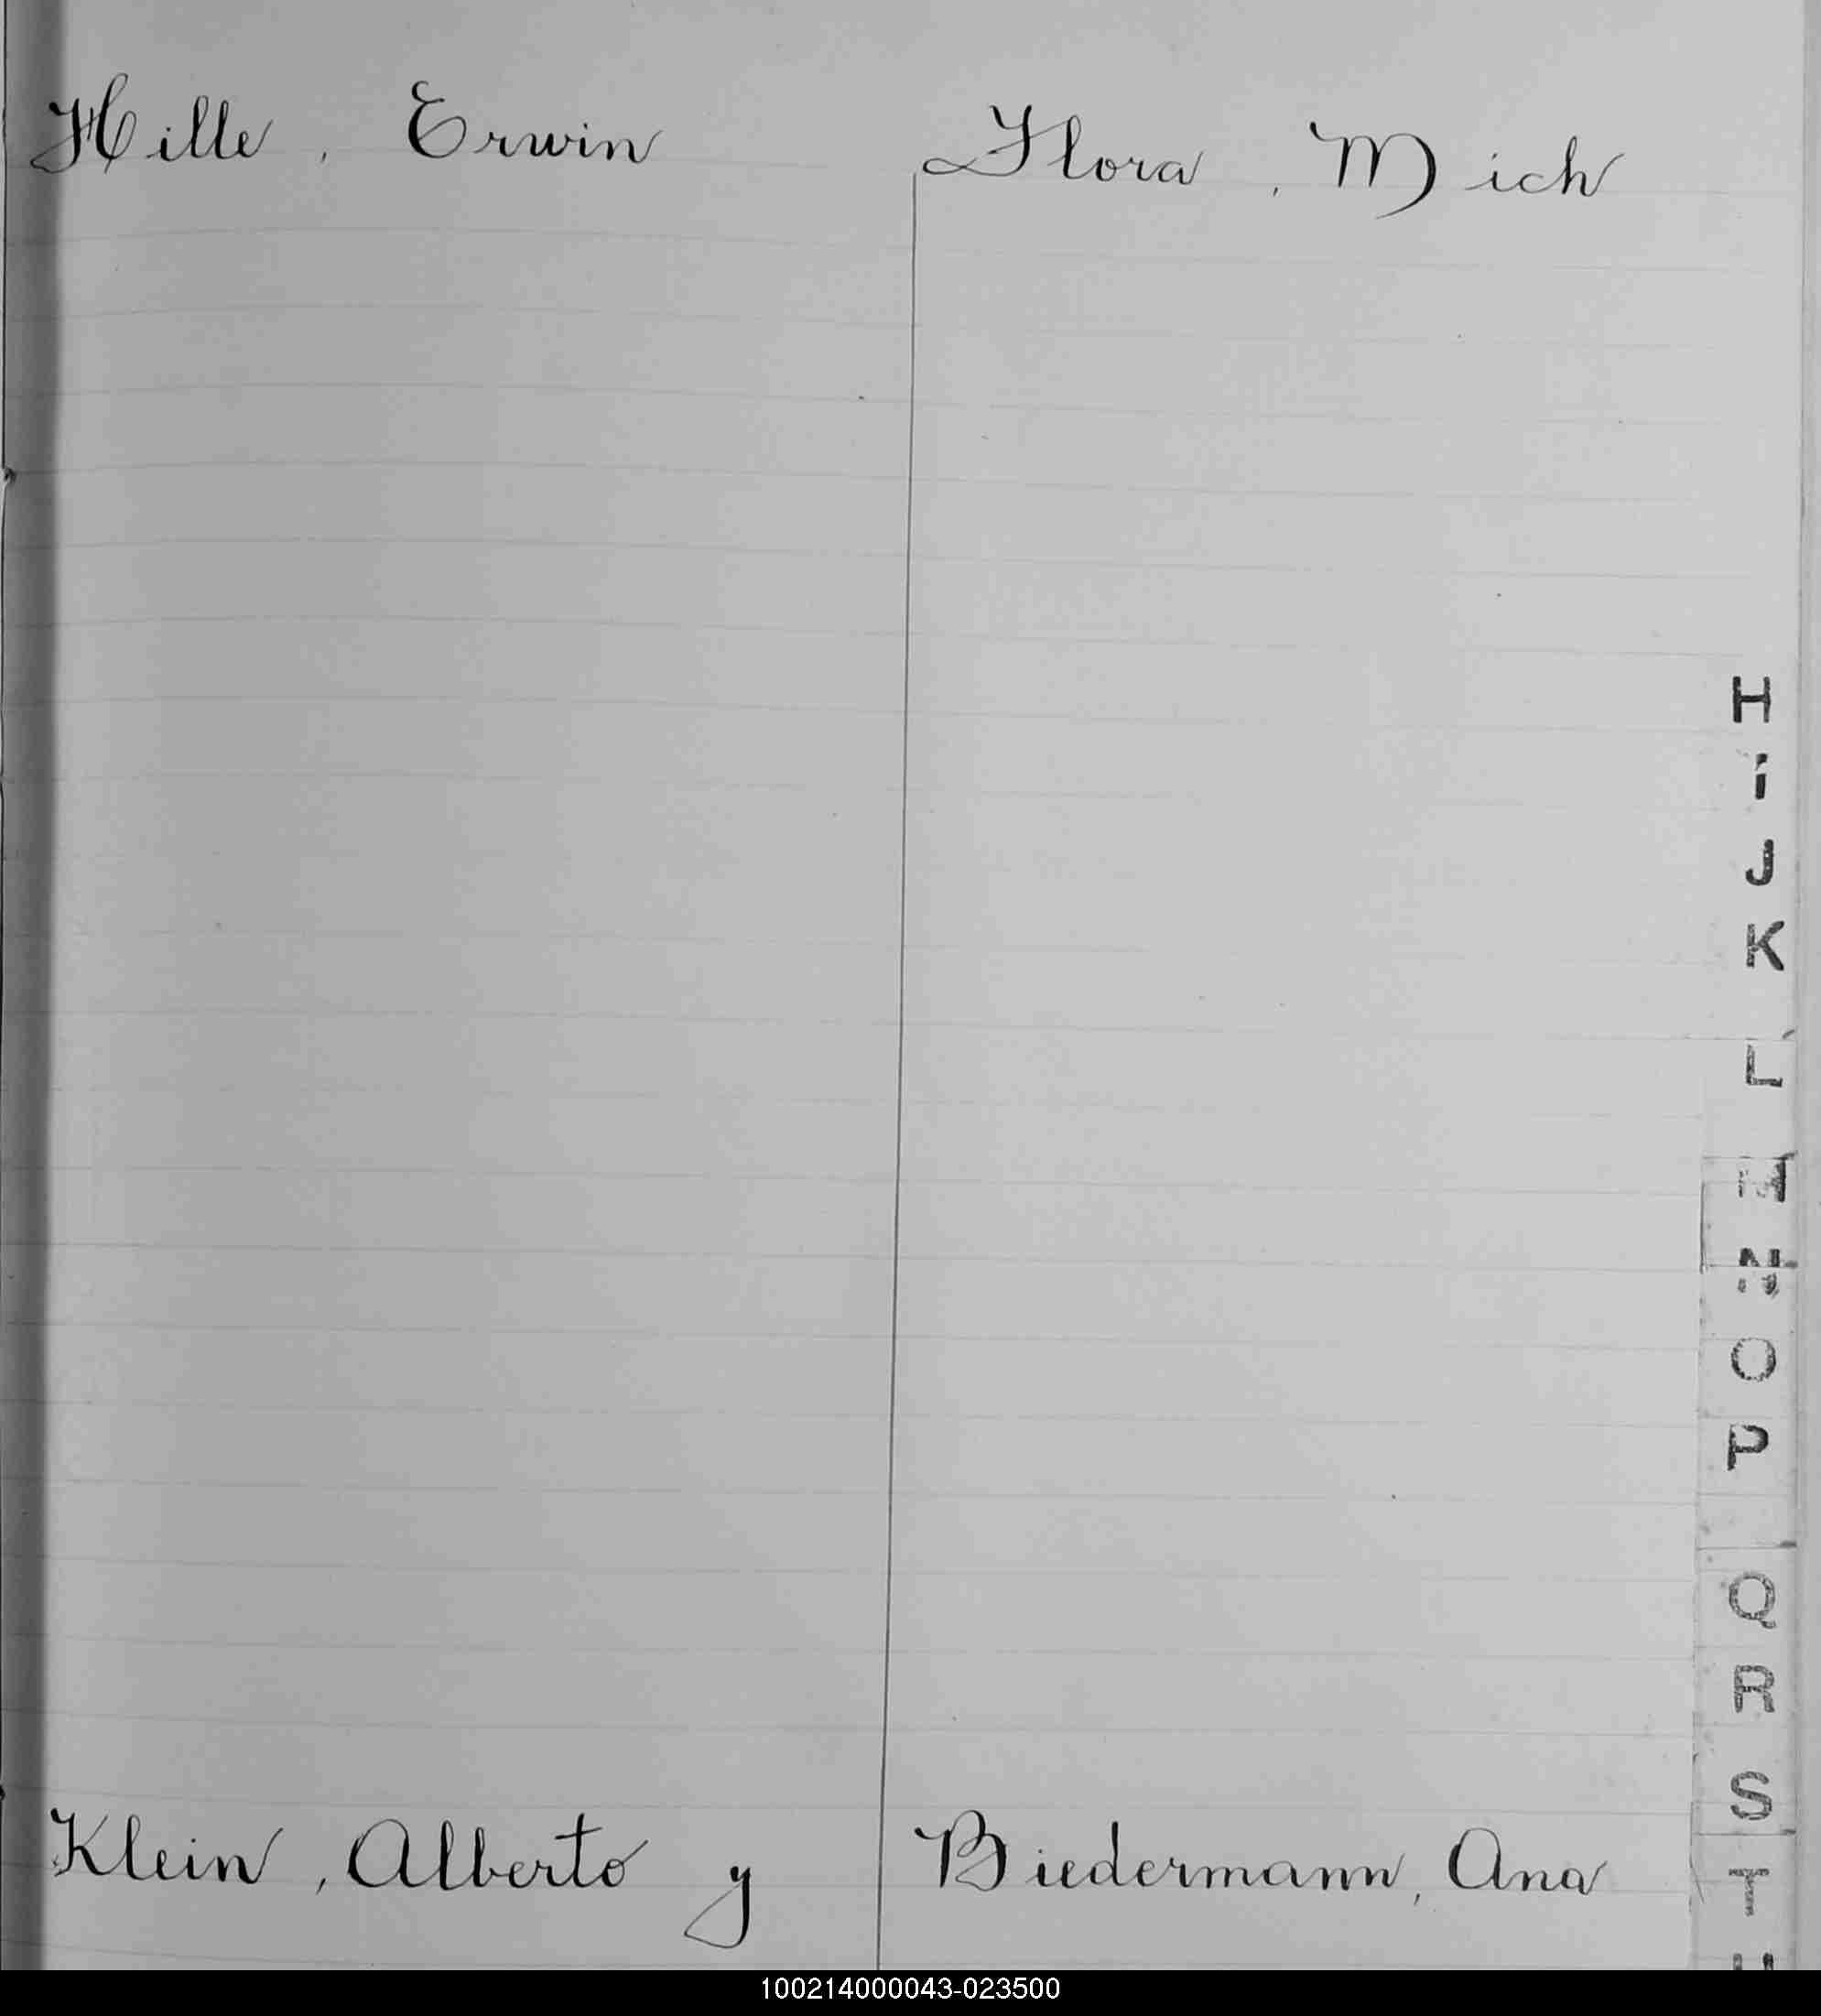 Hille, Erwin Flora, Mich
H
I
J
K
L
M
N
O
P
Q
R
S
T
Klein, Alberto y Biedermann, Ana
100214000043-023500